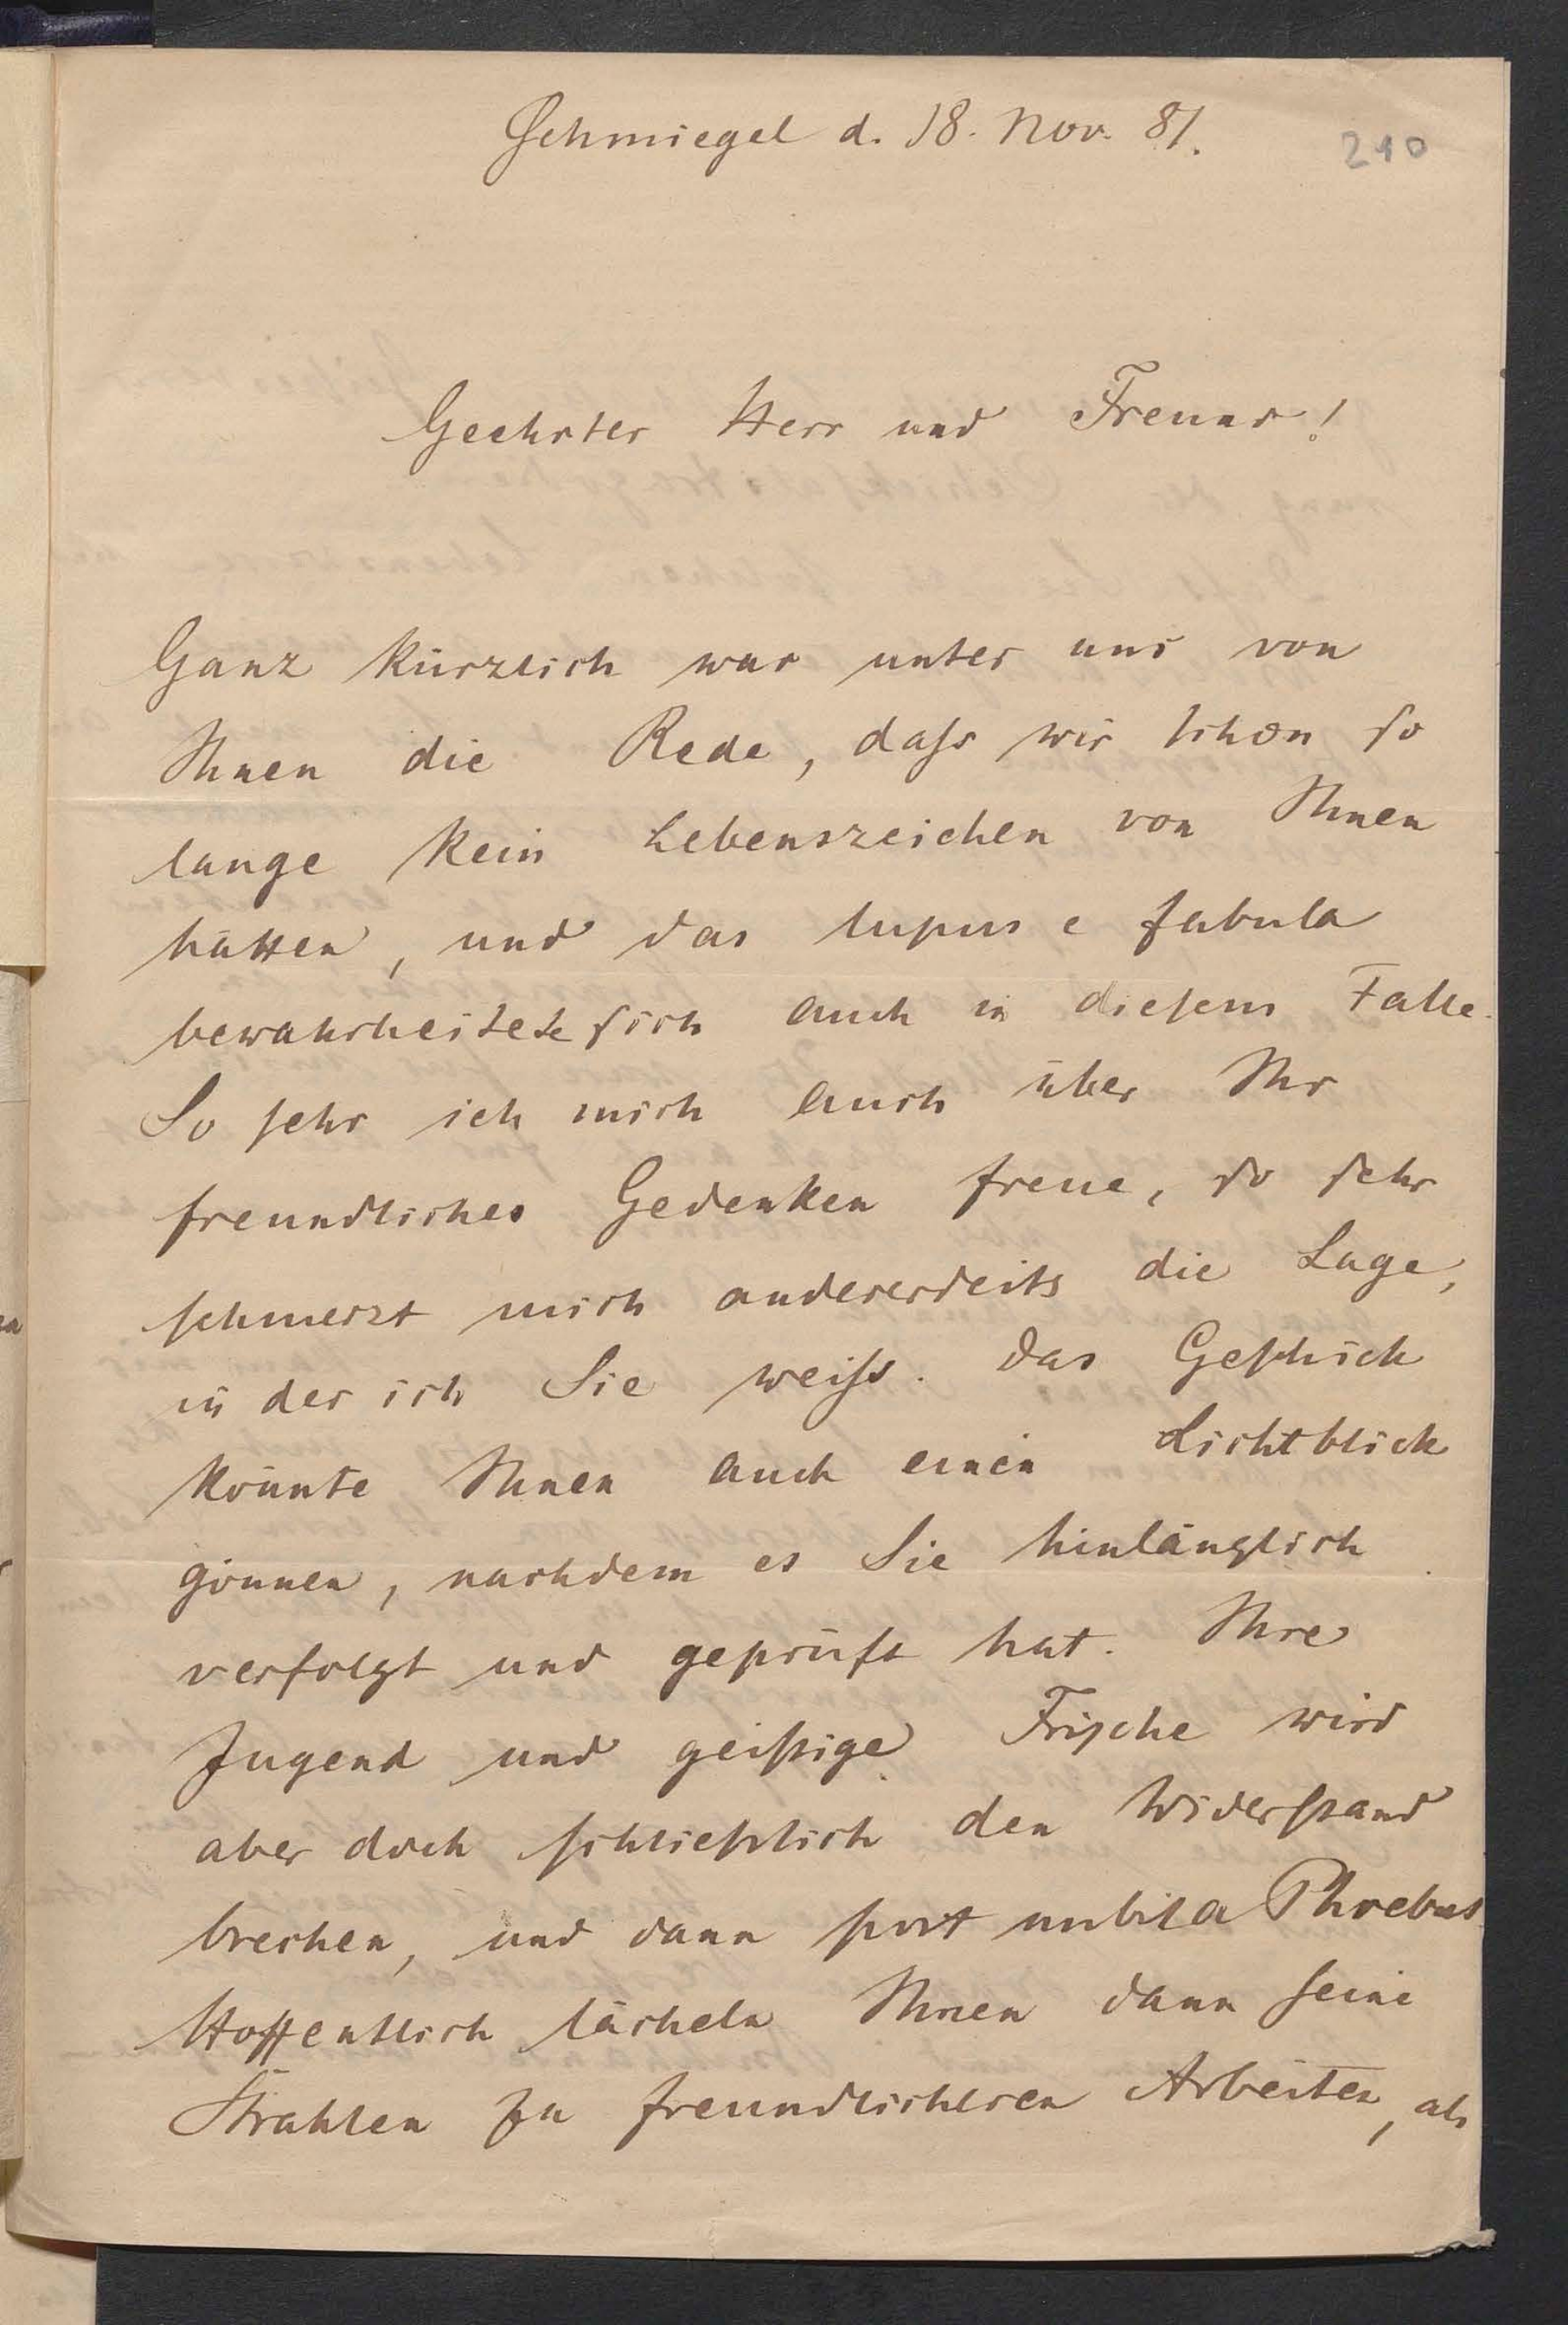 Schmiegel d. 18. Nov. 81.
210
Geehrter Herr und Freund!
Ganz kürzlich war unter uns von
Ihnen die Rede, daſs wir schon so
lange kein Lebenszeichen von Ihnen
hätten, und das lupus e fabula
bewahrheitete sich auch in diesem Falle.
So sehr ich mich auch über Ihr
freundliches Gedenken freue, so sehr
schmerzt mich andererseits die Lage,
in der ich Sie weiſs. Das Geschick
könnte Ihnen auch einen Lichtblick
gönnen, nachdem es Sie hinlänglich
verfolgt und geprüft hat. Ihre
Jugend und geistige Frische wird
aber doch schließlich den Widerstand
brechen, und dann post nubila Phoebus
Hoffentlich lächeln Ihnen dann seine
Strahlen zu freundlicheren Arbeiten, als